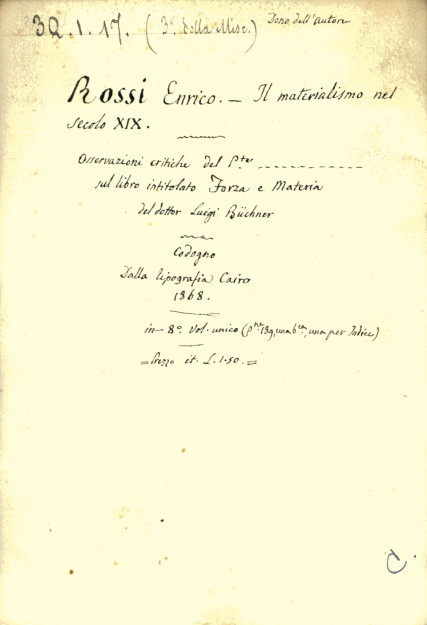 3Q.1.17. (3ª della Misc.) Dono dell'autore
Rossi Enrico. — Il materialismo nel
secolo XIX.
Osservazioni critiche del P.te
sul libro intitolato Forza e Materia
del dottor Luigi Büchner
Codogno
Dalla tipografia Cairo
1868.
in-8º vol. unico (p.ne 139, una b.ca, una per Indice)
= Prezzo it. L. 1.50. =
C